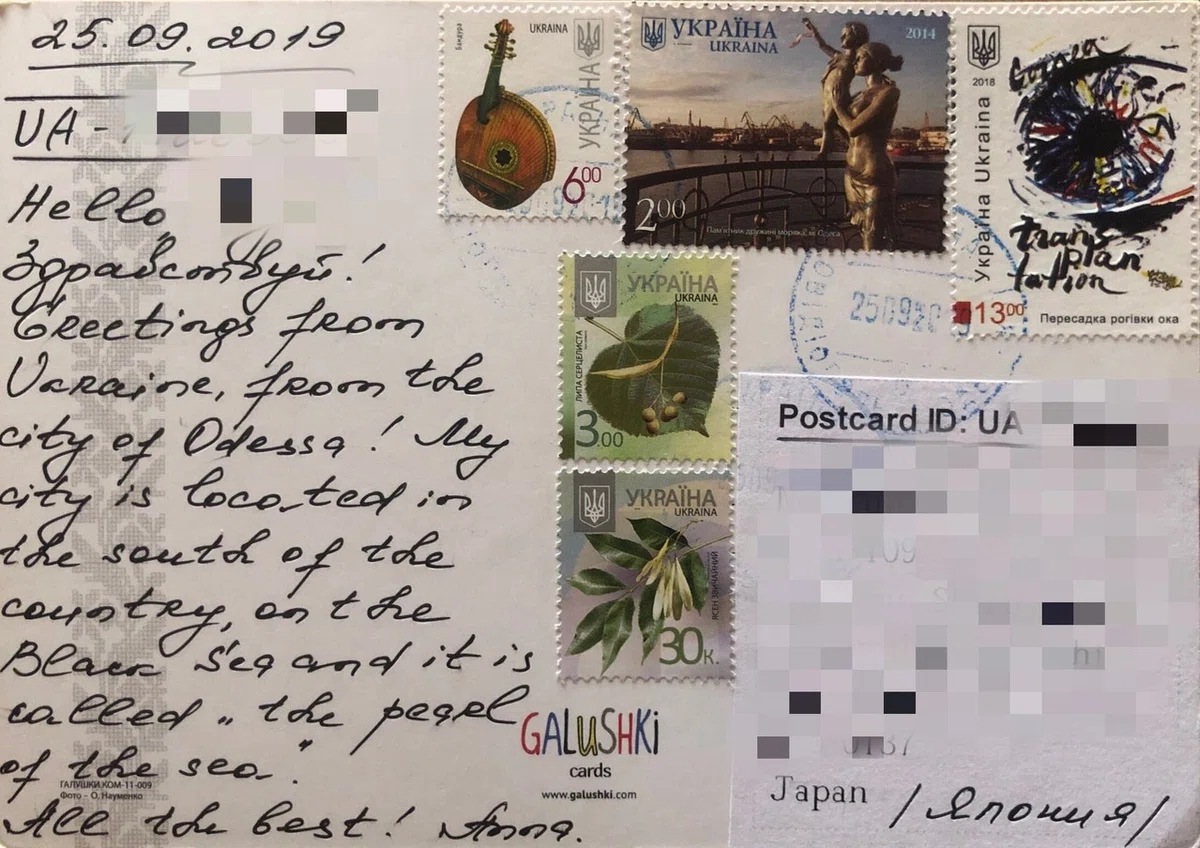 25.09.2019
UA -
Hello
Здравствуй!
Greetings from
Ukraine, from the
city of Odessa! My
city is located in
the south of the
country, on the
Black Sea and it is
called „the pearl
of the sea".
All the best! Anna.
ГАЛУШКИ.КОМ-11-009
Фото - О. Науменко
Бандура
UKRAINA
УКРАЇНА
6 00
УКРАЇНА
UKRAINA
2014
2 00
Пам'ятник дружині моряка, м. Одеса
2018
Україна Ukraina
Cornea
trans
plan
tation
13 00
Пересадка рогівки ока
УКРАЇНА
UKRAINA
ЛИПА СЕРЦЕЛИСТА
3.00
УКРАЇНА
UKRAINA
ЯСЕН ЗВИЧАЙНИЙ
30 К.
250920
GALUSHKi
cards
www.galushki.com
Postcard ID: UA
Japan /Япония/